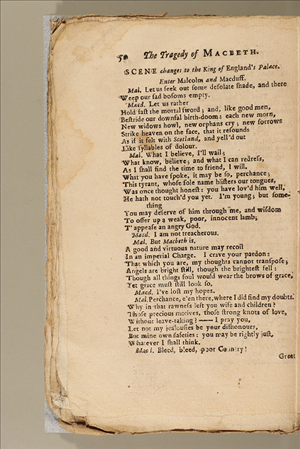 50 The Tragedy of MACBETH.
SCENE changes to the King of England's Palace.
Enter Malcolm and Macduff.
Mal. Let us seek out some desolate shade, and there
Weep our sad bosoms empty.
Macd. Let us rather
Hold fast the mortal sword; and, like good men,
Bestride our downfal birth-doom: each new morn,
New widows howl, new orphans cry; new sorrows
Strike heaven on the face, that it resounds
As if it felt with Scotland, and yell'd out
Like syllables of dolour.
Mal. What I believe, I'll wail;
What know, believe; and what I can redress,
As I shall find the time to friend, I will.
What you have spoke, it may be so, perchance;
This tyrant, whose sole name blisters our tongues,
Was once thought honest: you have lov'd him well,
He hath not touch'd you yet. I'm young; but some-
thing
You may deserve of him through me, and wisdom
To offer up a weak, poor, innocent lamb,
T' appease an angry God.
Macd. I am not treacherous.
Mal. But Macbeth is,
A good and virtuous nature may recoil
In an imperial Charge. I crave your pardon:
That which you are, my thoughts cannot transpose;
Angels are bright still, though the brightest fell:
Though all things foul would wear the brows of grace,
Yet grace must still look so.
Macd. I've lost my hopes.
Mal. Perchance, e'en there, where I did find my doubts.
Why in that rawness left you wife and children?
Those precious motives, those strong knots of love,
Without leave-taking? —— I pray you,
Let not my jealousies be your dishonour,
But mine own safeties: you may be rightly just,
Whatever I shall think.
Macd. Bleed, bleed, poor Country!
Great